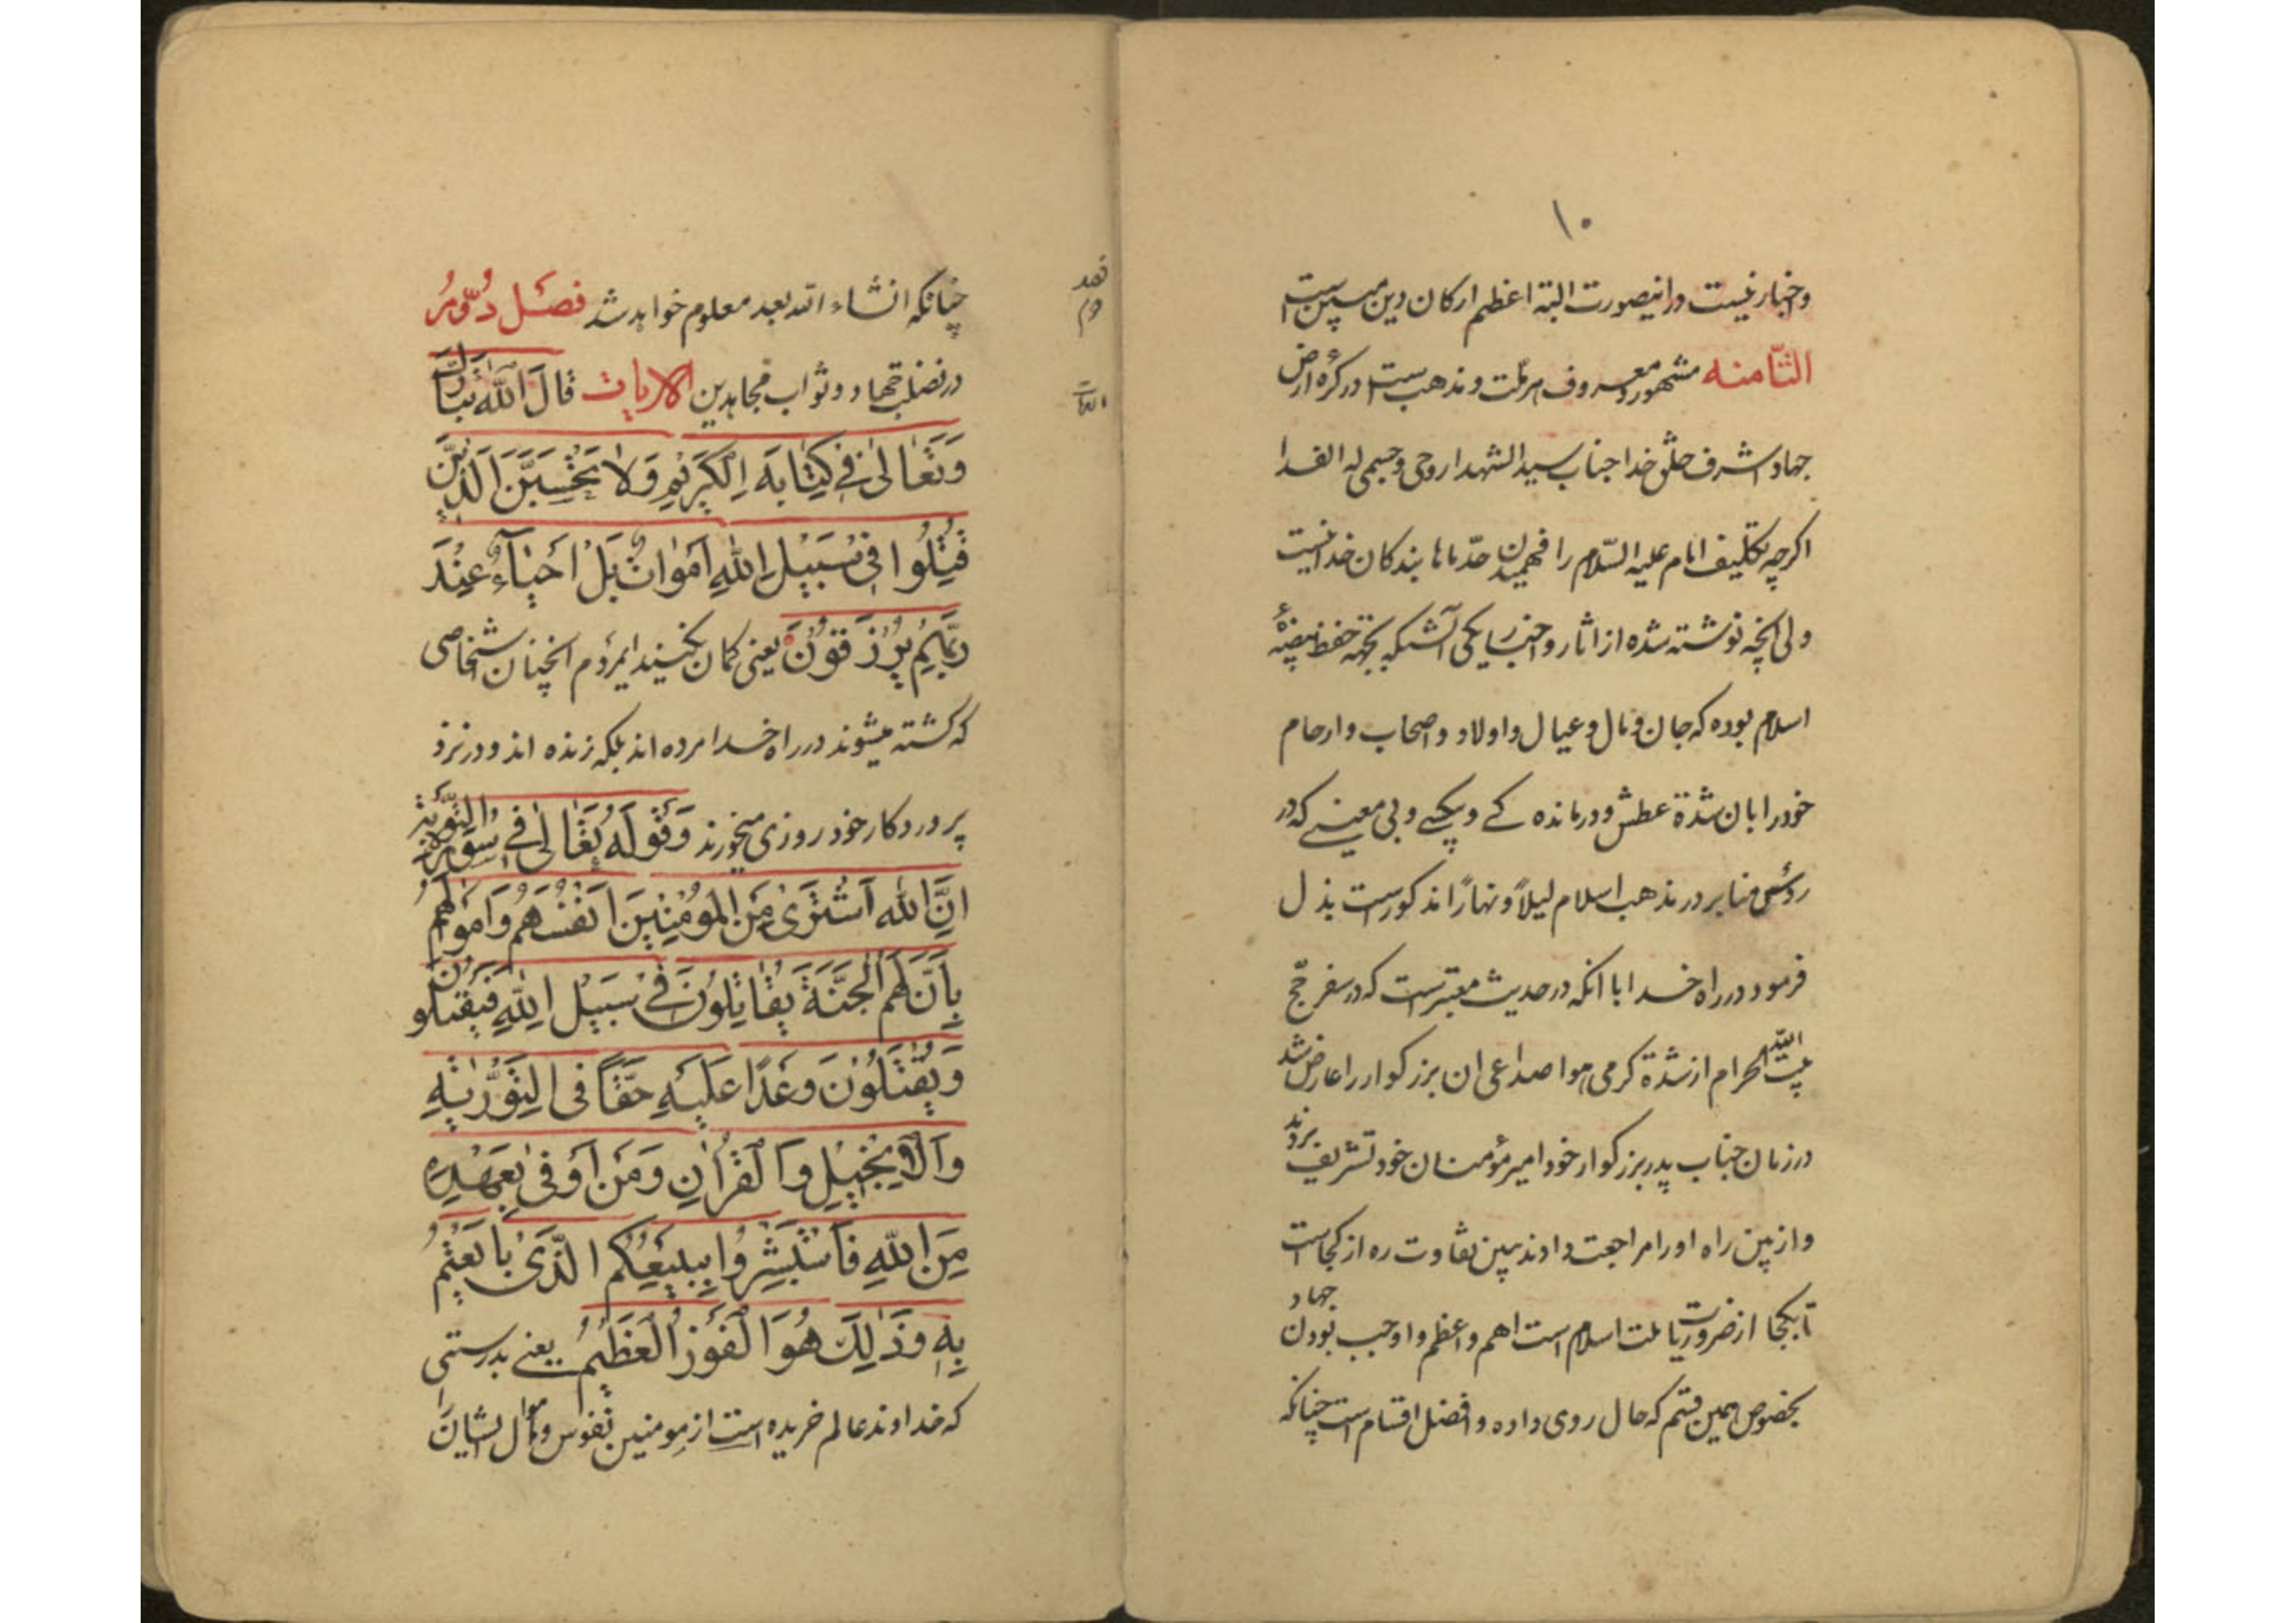 ۱۰
و اخبار نیست در اینصورت البته اعظم ارکان دین مبین است
الثّامنه مشهور و معروف هر ملّت و مذهب است در کرهٔ ارض
جهاد اشرف خلق خدا جناب سید الشهدا روحی و جسمی له الفدا
اکرچه تکلیف امام علیه السّلام را فهمیدن حدّ ماها بندکان خدا نیست
ولی آنچه نوشته شده از اثار و اخبار یکی آنستکه بجهة حفظ بیضهٔ
اسلام بوده که جان و مال و عیال و اولاد و اصحاب و ارحام
خود را بان شدّة عطش و درمانده کے و بیکسے و بی معینے که در
رؤس منابر در مذهب اسلام لیلاً و نهاراً مذکور است بذل
فرمود در راه خدا با انکه در حدیث معتبر است که در سفر حجّ
بیت اللّه الحرام از شدّة کرمی هوا صداعی ان بزرکوار را عارض شد
در زمان جناب پدر بزرکوار خود امیر مؤمنان خود تشریف بردند
و از بین راه او را مراجعت دادند ببین تفاوت ره از کجاست
تا بکجا از ضروریات ملت اسلام است اهم و اعظم و اوجب بودن جهاد
بخصوص همین قسم که حال روی داده و افضل اقسام است چنانکه
چنانکه انشاء الله بعد معلوم خواهد شد فصَل دُوّمُ
در فضیلت جهاد و ثواب مجاهدین الایات قٰالَ اللّٰه تَبٰارَكَ
وَتَعٰالىٰ فی کِتٰابِهِ الْکَرَیْمِ وَلاٰ تَحْسَبَنَّ الَّذیٖنَ
قُتِلُوا فیٖ سَبیٖلِ اللّٰهِ اَمْوٰاتٌ بَلْ اَحْیٰآءٌ عِنْدَ
رَبِّهِمْ یُرْزَقوُنَ یعنی کمان نکنیند ایمردم انچنان شخاصی
که کشته میشوند در راه خدا مرده اند بلکه زنده اند و در نزد
پروردکار خود روزی میخورند وَقَوْلَهُ تَعٰالىٰ فیٖ سوُرَة التَّوْبَةِ
اِنَّ اللّٰه اَشْتَرىٰ مِنَ المُؤْمِنیٖنَ اَنْفُسَهُمْ وَاَمْوٰالَهُمْ
بِاَنَّ لَهُمُ الْجَنَّةَ یُقٰاتِلوُنَ فیٖ سَبیٖلِ اللّٰهِ فَیَقْتُلُونَ
وَیُقْتَلوُنَ وَعْدًا عَلَیْهِ حَقًّا فی التَّوْرٰیةِ
وَالْاِنْجیٖلِ وَالْقُرْاٰنِ وَمَنْ اَوْفىٰ بِعَهْدِهِ
مِنَ اللّٰهِ فَاسْتَبْشِرُوا بِبَیْعِکُمُ الَّذیٖ بٰایَعْتُمْ
بِهِ وَذٰلِكَ هُوَ الْفَوْزُ الْعَظیٖمُ یعنے بدرستی
که خداوند عالم خریده است از مومنین نفوس و اموال ایشان را